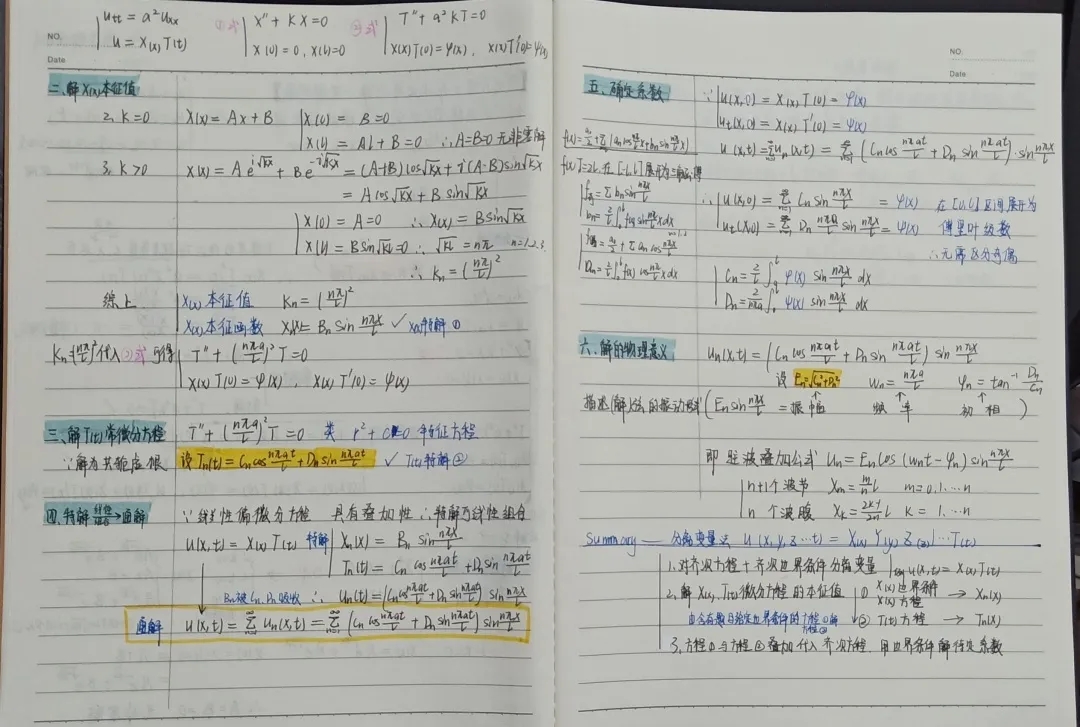 u_tt = a²u_xx
u = X(x)T(t)
①式
X'' + KX = 0
X(0) = 0, X(l) = 0
②式
T'' + a²KT = 0
X(x)T(0) = φ(x), X(x)T'(0) = ψ(x)
NO.
Date
二、解X(x)本征值
2. K=0 X(x) = Ax + B X(0) = B = 0
X(l) = Al + B = 0 ∴A=B=0 无非零解
3. K>0 X(x) = Ae^{i√Kx} + Be^{-i√Kx} = (A+B)cos√Kx + i(A-B)sin√Kx
= A cos√Kx + B sin√Kx
X(0) = A = 0 ∴ X(x) = B sin√Kx
X(l) = B sin√Kl = 0 ∴ √Kl = nπ n=1.2.3.
∴ Kn = (nπ/l)²
综上 X(x)本征值 Kn = (nπ/l)²
X(x)本征函数 Xn(x) = Bn sin nπx/l ✓ X(x)特解①
Kn=(nπ/l)²代入②式可得 T'' + (nπa/l)²T = 0
X(x)T(0) = φ(x), X(x)T'(0) = ψ(x)
三、解T(t)常微分方程 T'' + (nπa/l)²T = 0 类 r² + C = 0 特征方程
∵解为共轭虚根 设Tn(t) = Cn cos nπat/l + Dn sin nπat/l ✓ T(t)特解②
四、特解 线性组合→ 通解 ∵线性偏微分方程 具有叠加性 ∴特解可线性组合
u(x,t) = X(x)T(t) 特解 Xn(x) = Bn sin nπx/l
Tn(t) = Cn cos nπat/l + Dn sin nπat/l
Bn被Cn.Dn吸收 ∴ un(t) = (Cn cos nπat/l + Dn sin nπat/l) sin nπx/l
通解 u(x,t) = Σ_{n=1}^∞ un(x,t) = Σ_{n=1}^∞ (Cn cos nπat/l + Dn sin nπat/l) sin nπx/l
NO.
Date
五、确定系数 ∵ u(x,0) = X(x)T(0) = φ(x)
ut(x,0) = X(x)T'(0) = ψ(x)
u(x,t) = Σ_{n=1}^∞ un(x,t) = Σ_{n=1}^∞ (Cn cos nπat/l + Dn sin nπat/l)·sin nπx/l
f(x) = a₀/2 + Σ(an cos nπx/l + bn sin nπx/l)
f(x) T=2L.在[-l,l]展开为
f(x) = Σ bn sin nπx/l
bn = 2/l ∫₀^l f(x) sin nπx/l dx
f(x) = a₀/2 + Σ an cos nπx/l
∫₀^l f(x) cos nπx/l dx
∴ u(x,0) = Σ_{n=1}^∞ Cn sin nπx/l = φ(x) 在[0,l]区间展开为
ut(x,0) = Σ_{n=1}^∞ Dn nπa/l sin nπx/l = ψ(x) 傅里叶级数
∴无需区分奇偶
Cn = 2/l ∫₀^l φ(x) sin nπx/l dx
Dn = 2/nπa ∫₀^l ψ(x) sin nπx/l dx
六、解的物理意义 un(x,t) = (Cn cos nπat/l + Dn sin nπat/l) sin nπx/l
设 En=√(Cn²+Dn²) wn = nπa/l φn = tan⁻¹ Dn/Cn
(En sin nπx/l = 振幅 频率 初相)
即驻波叠加公式 un = En cos(wnt - φn) sin nπx/l
n+1个波节 Xm = m/n l m=0.1.…n
n 个波腹 Xk = 2k-1/2n l k=1.…n
Summary —— 分离变量法 u(x,y,z…t) = X(x)Y(y)Z(z)…T(t)
1.对齐次方程+齐次边界条件分离变量 u(x,t) = X(x)T(t)
2.解X(x),T(t)微分方程的本征值 ① X(x)边界条件 X(x)方程 → Xn(x)
② T(t)方程 → Tn(x)
3.方程①与方程②叠加代入齐次方程.用边界条件解待定系数